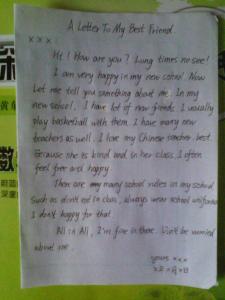 A Letter To My Best Friend
×××:
Hi! How are you? Lung times no see!
I am very happy in my new school. Now
Let me tell you something about me. In my
new school. I have lot of new friends. I usually
play basketball with them. I have many new
teachers as well. I love my Chinese teacher best.
Because she is kind and in her class, I often
feel free and happy.
There are many school rules in my school
Such as don't eat in class, always wear school uniforms
I don't happy for that.
All in All, I'm fine in there. Don't be worried
about me.
yours ×××
×月×日
深
数